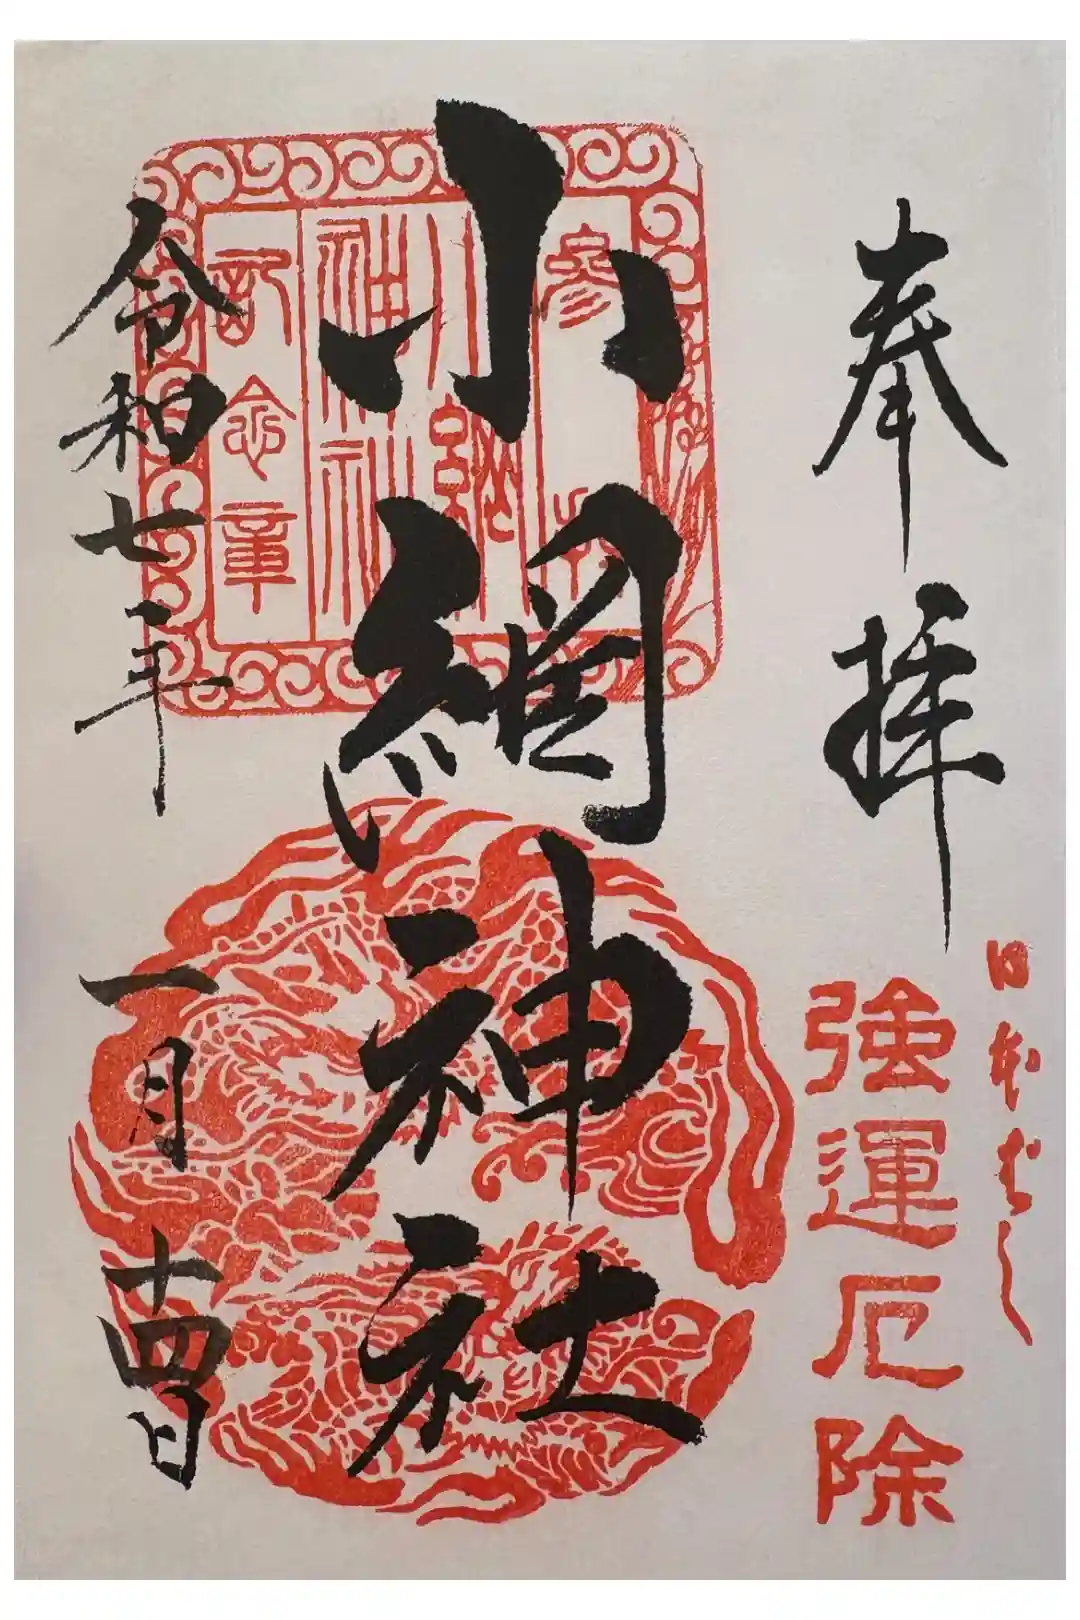 奉拝
日本ばし
強運厄除
小網神社
参拝
小網
神社
記念章
令和七年
一月十四日